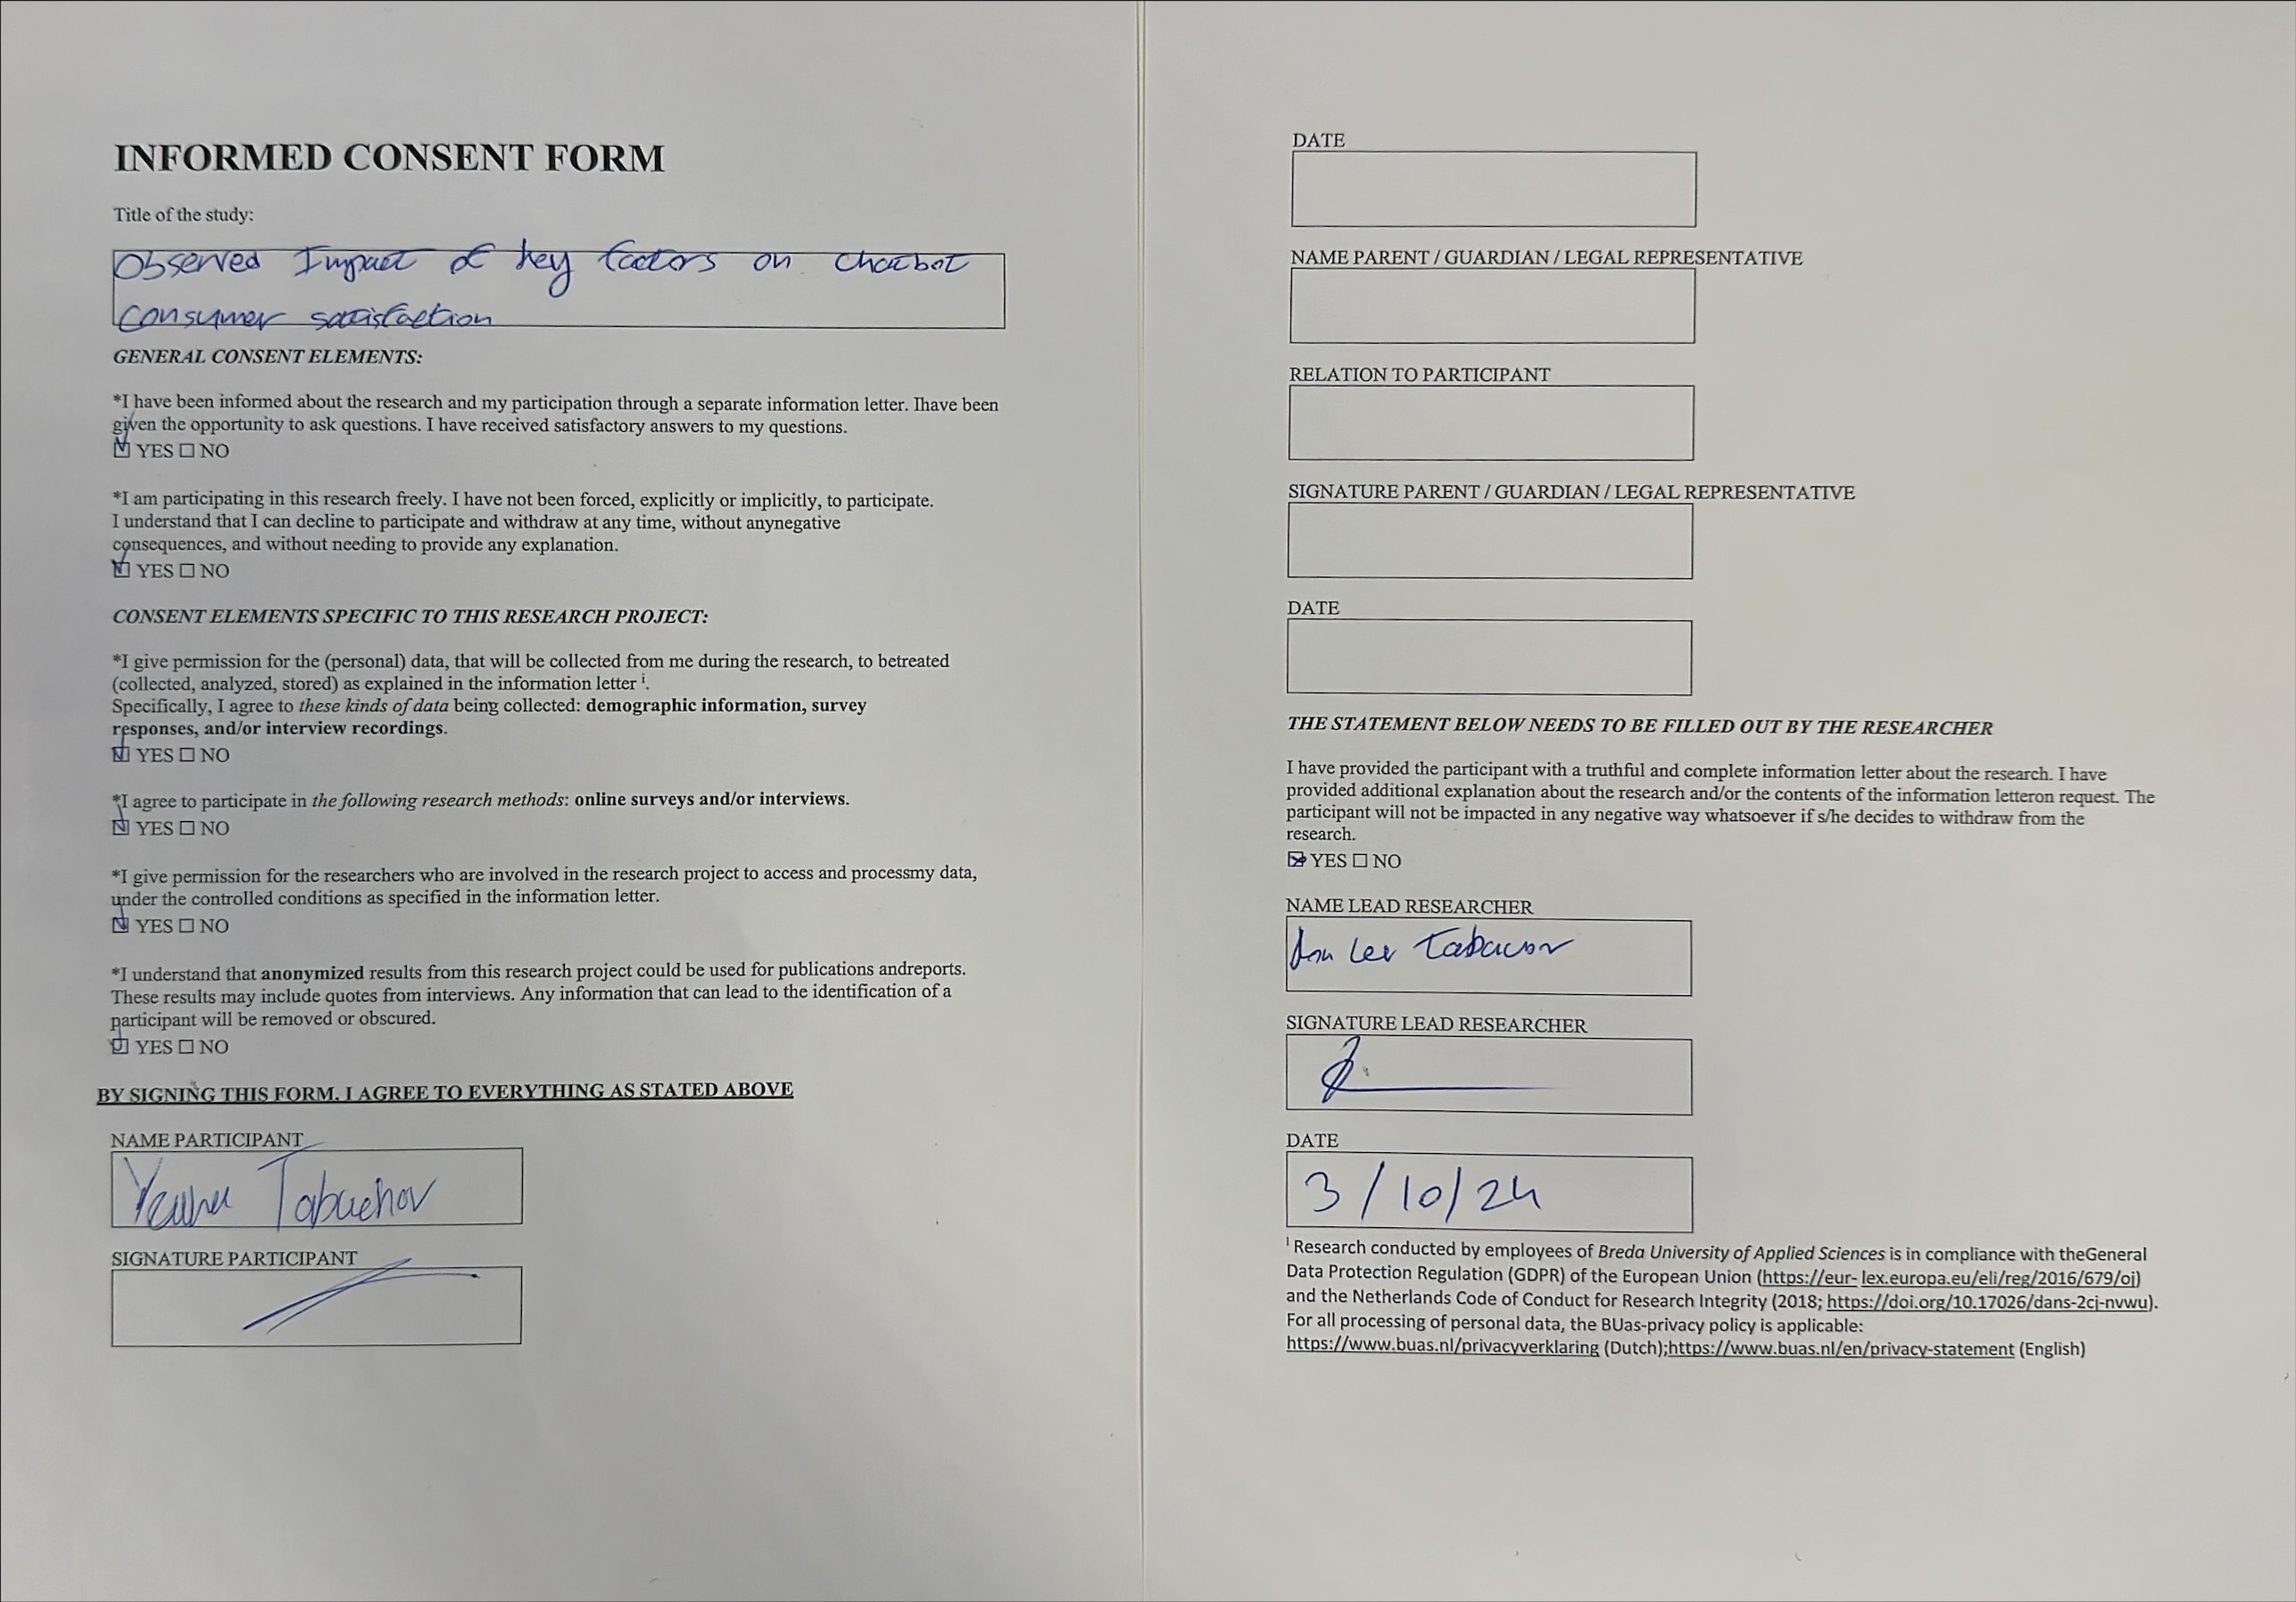 INFORMED CONSENT FORM
Title of the study:
Observed Impact of key factors on chatbot
consumer satisfaction
GENERAL CONSENT ELEMENTS:
*I have been informed about the research and my participation through a separate information letter. Ihave been
given the opportunity to ask questions. I have received satisfactory answers to my questions.
☑ YES ☐ NO
*I am participating in this research freely. I have not been forced, explicitly or implicitly, to participate.
I understand that I can decline to participate and withdraw at any time, without anynegative
consequences, and without needing to provide any explanation.
☑ YES ☐ NO
CONSENT ELEMENTS SPECIFIC TO THIS RESEARCH PROJECT:
*I give permission for the (personal) data, that will be collected from me during the research, to betreated
(collected, analyzed, stored) as explained in the information letter i.
Specifically, I agree to these kinds of data being collected: demographic information, survey
responses, and/or interview recordings.
☑ YES ☐ NO
*I agree to participate in the following research methods: online surveys and/or interviews.
☑ YES ☐ NO
*I give permission for the researchers who are involved in the research project to access and processmy data,
under the controlled conditions as specified in the information letter.
☑ YES ☐ NO
*I understand that anonymized results from this research project could be used for publications andreports.
These results may include quotes from interviews. Any information that can lead to the identification of a
participant will be removed or obscured.
☑ YES ☐ NO
BY SIGNING THIS FORM, I AGREE TO EVERYTHING AS STATED ABOVE
NAME PARTICIPANT
Tabachov
SIGNATURE PARTICIPANT
DATE
NAME PARENT / GUARDIAN / LEGAL REPRESENTATIVE
RELATION TO PARTICIPANT
SIGNATURE PARENT / GUARDIAN / LEGAL REPRESENTATIVE
DATE
THE STATEMENT BELOW NEEDS TO BE FILLED OUT BY THE RESEARCHER
I have provided the participant with a truthful and complete information letter about the research. I have
provided additional explanation about the research and/or the contents of the information letteron request. The
participant will not be impacted in any negative way whatsoever if s/he decides to withdraw from the
research.
☒ YES ☐ NO
NAME LEAD RESEARCHER
Lev Tabacov
SIGNATURE LEAD RESEARCHER
DATE
3/10/24
i Research conducted by employees of Breda University of Applied Sciences is in compliance with theGeneral
Data Protection Regulation (GDPR) of the European Union (https://eur- lex.europa.eu/eli/reg/2016/679/oj)
and the Netherlands Code of Conduct for Research Integrity (2018; https://doi.org/10.17026/dans-2cj-nvwu).
For all processing of personal data, the BUas-privacy policy is applicable:
https://www.buas.nl/privacyverklaring (Dutch);https://www.buas.nl/en/privacy-statement (English)